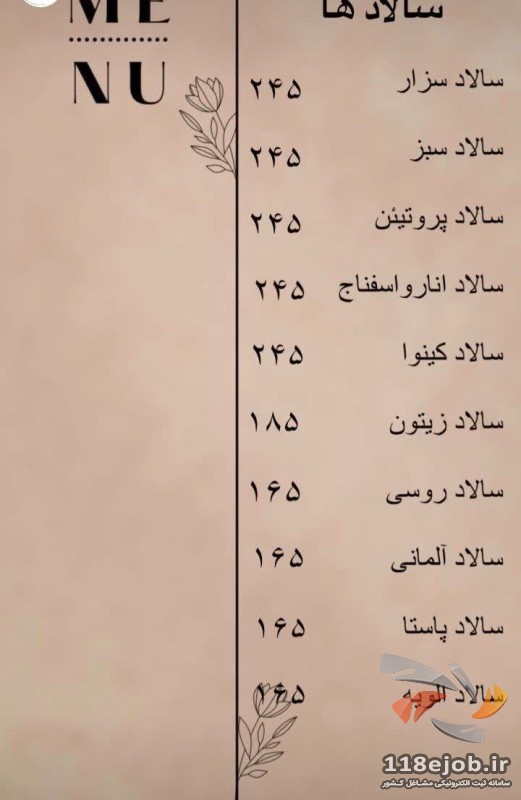 ME
NU
سالاد ها
سالاد سزار ۲۴۵
سالاد سبز ۲۴۵
سالاد پروتیئن ۲۴۵
سالاد انارواسفناج ۲۴۵
سالاد کینوا ۲۴۵
سالاد زیتون ۱۸۵
سالاد روسی ۱۶۵
سالاد آلمانی ۱۶۵
سالاد پاستا ۱۶۵
سالاد الویه ۱۶۵
118ejob.ir
سامانه ثبت الکترونیکی مشاغل کشور